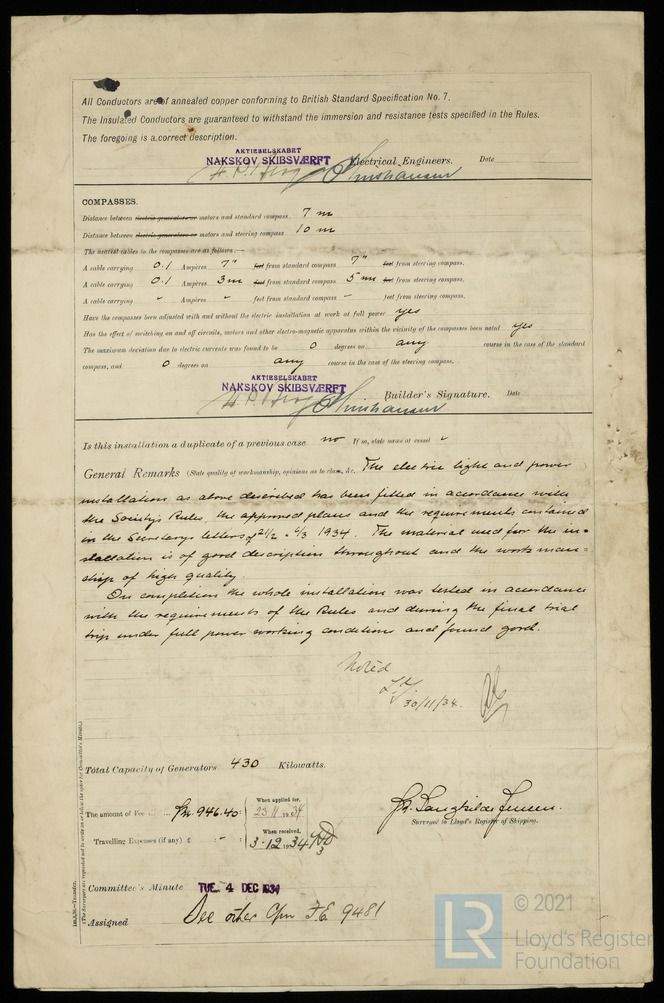 All Conductors are of annealed copper conforming to British Standard Specification No. 7.
The Insulated Conductors are guaranteed to withstand the immersion and resistance tests specified in the Rules.
The foregoing is a correct description.
AKTIESELSKABET
NAKSKOV SKIBSVÆRFT Electrical Engineers. Date
COMPASSES.
Distance between electric generators or motors and standard compass 7 m
Distance between electric generators or motors and steering compass 10 m
The nearest cables to the compasses are as follows:—
A cable carrying 0.1 Ampères 7" feet from standard compass 7" feet from steering compass.
A cable carrying 0.1 Ampères 3m feet from standard compass 5 m feet from steering compass.
A cable carrying " Ampères " feet from standard compass – feet from steering compass.
Have the compasses been adjusted with and without the electric installation at work at full power yes
Has the effect of switching on and off circuits, motors and other electro-magnetic apparatus within the vicinity of the compasses been noted yes
The maximum deviation due to electric currents was found to be 0 degrees on any course in the case of the standard
compass, and 0 degrees on any course in the case of the steering compass.
AKTIESELSKABET
NAKSKOV SKIBSVÆRFT Builder's Signature. Date
Is this installation a duplicate of a previous case no If so, state name of vessel "
General Remarks (State quality of workmanship, opinions as to class, &c. The electric light and power
installation as above described has been fitted in accordance with
the Society's Rules, the approved plans and the requirements contained
in the Secretary's letters of 21/2 - 6/3 1934. The material used for the in=
stallation is of good description throughout and the workman=
ship of high quality.
On completion the whole installation was tested in accordance
with the requirements of the Rules and during the final trial
trip under full power working condition and found good.
Noted
30/11/34.
Total Capacity of Generators 430 Kilowatts.
The amount of Fee Kr. 946.40 When applied for, 23.11.1934
Travelling Expenses (if any) £ : – : When received, 3.12.1934
Surveyor to Lloyd's Register of Shipping.
Committee's Minute TUE. 4 DEC 1934
Assigned See other Rpt F.E. 9481
© 2021
LR Lloyd's Register
Foundation